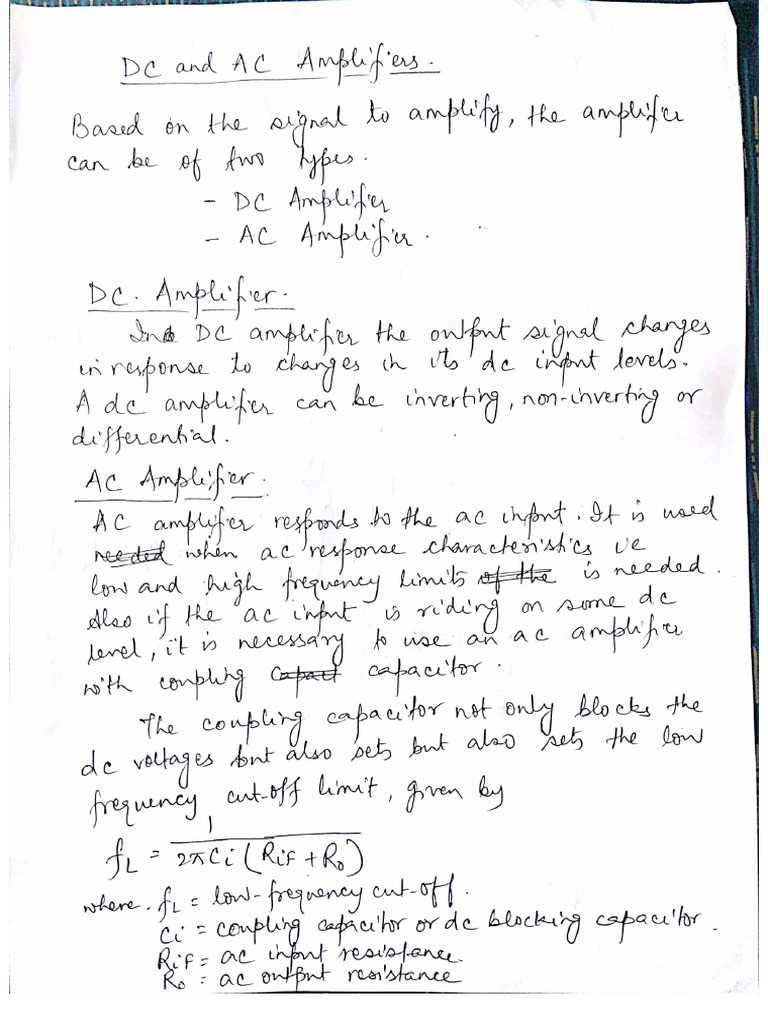 DC and AC Amplifiers.
Based on the signal to amplify, the amplifier
can be of two types.
- DC Amplifier
- AC Amplifier.
DC. Amplifier.
In a DC amplifier the output signal changes
in response to changes in its dc input levels.
A dc amplifier can be inverting, non-inverting or
differential.
AC Amplifier.
AC amplifier responds to the ac input. It is used
needed when ac response characteristics ie
low and high frequency limits of the is needed.
Also if the ac input is riding on some dc
level, it is necessary to use an ac amplifier
with coupling capact capacitor.
The coupling capacitor not only blocks the
dc voltages but also sets but also sets the low
frequency cut-off limit, given by
fL = 1 / 2πCi(RiF + Ro)
where. fL = low-frequency cut-off.
Ci = coupling capacitor or dc blocking capacitor.
RiF = ac input resistance.
Ro = ac output resistance